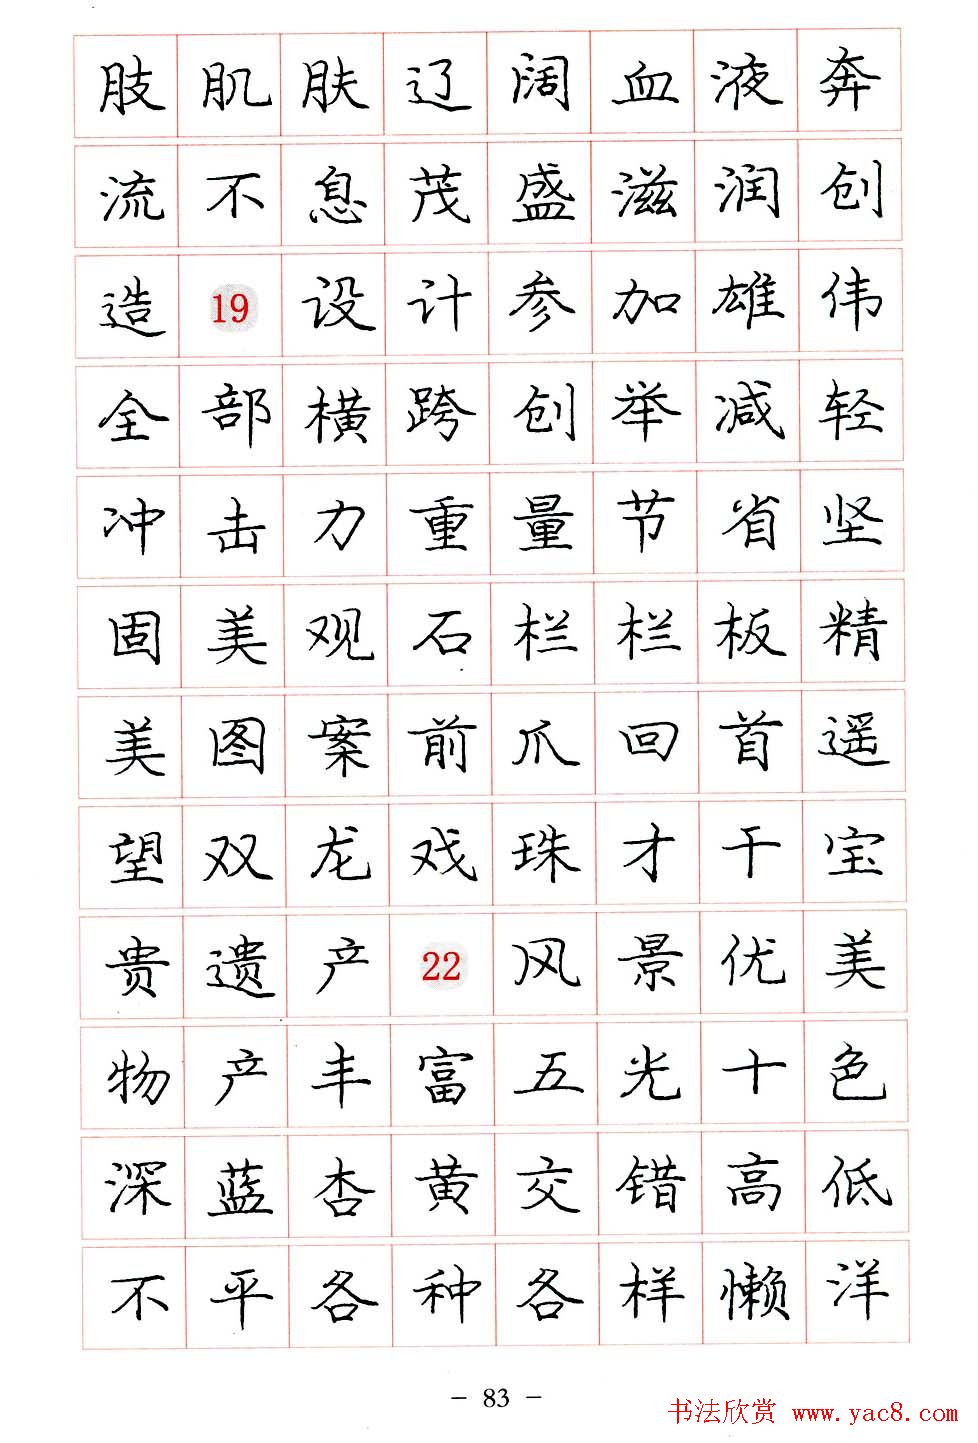 肢肌肤辽阔血液奔
流不息茂盛滋润创
造19设计参加雄伟
全部横跨创举减轻
冲击力重量节省坚
固美观石栏栏板精
美图案前爪回首遥
望双龙戏珠才干宝
贵遗产22风景优美
物产丰富五光十色
深蓝杏黄交错高低
不平各种各样懒洋
- 83 -
书法欣赏 www.yac8.com